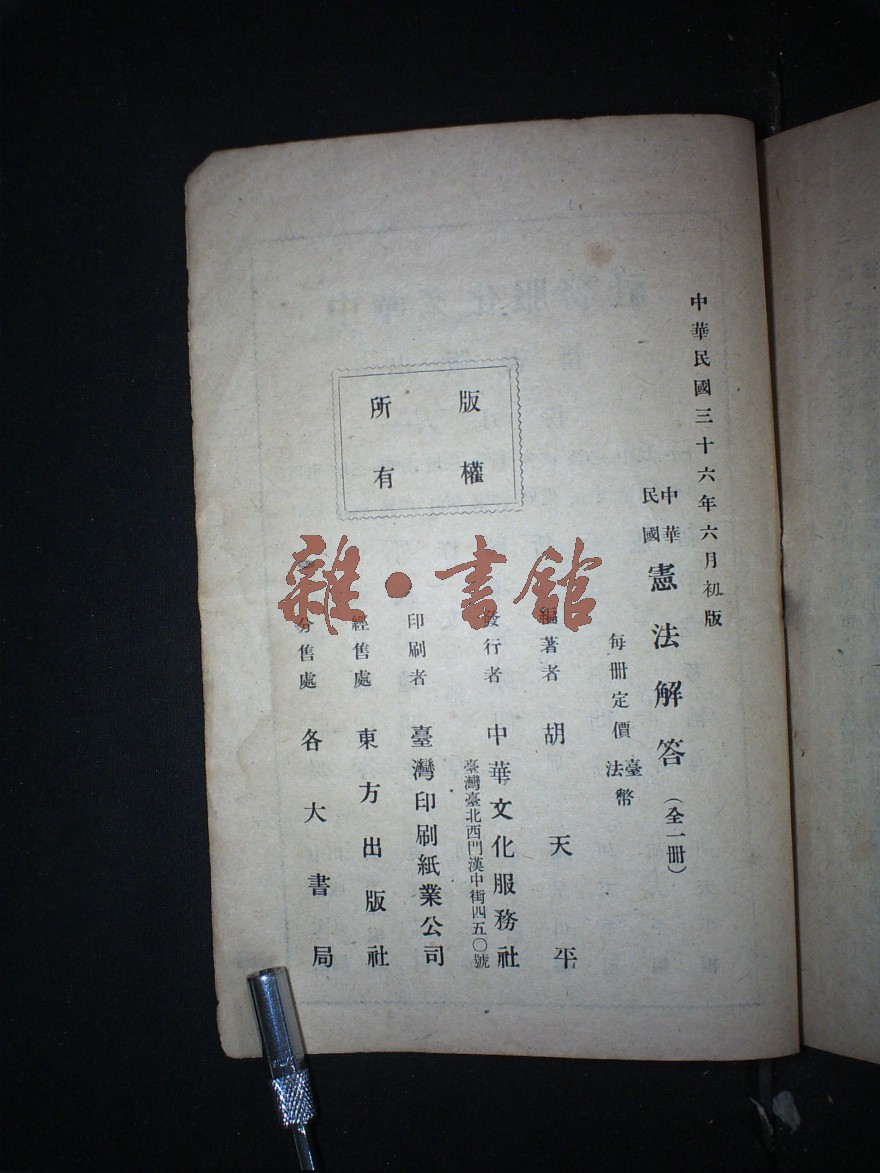 中華民國三十六年六月初版
中華民國憲法解答(全一冊)
每冊定價 臺法幣
編著者 胡天平
發行者 中華文化服務社
臺灣臺北西門漢中街四五〇號
印刷者 臺灣印刷紙業公司
經售處 東方出版社
分售處 各大書局
版權
所有
雜·書館